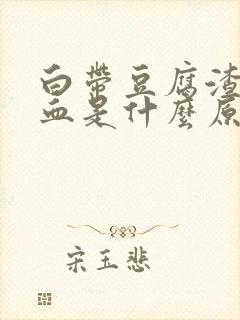 白带豆腐渣
血是什麼原
宋玉悲